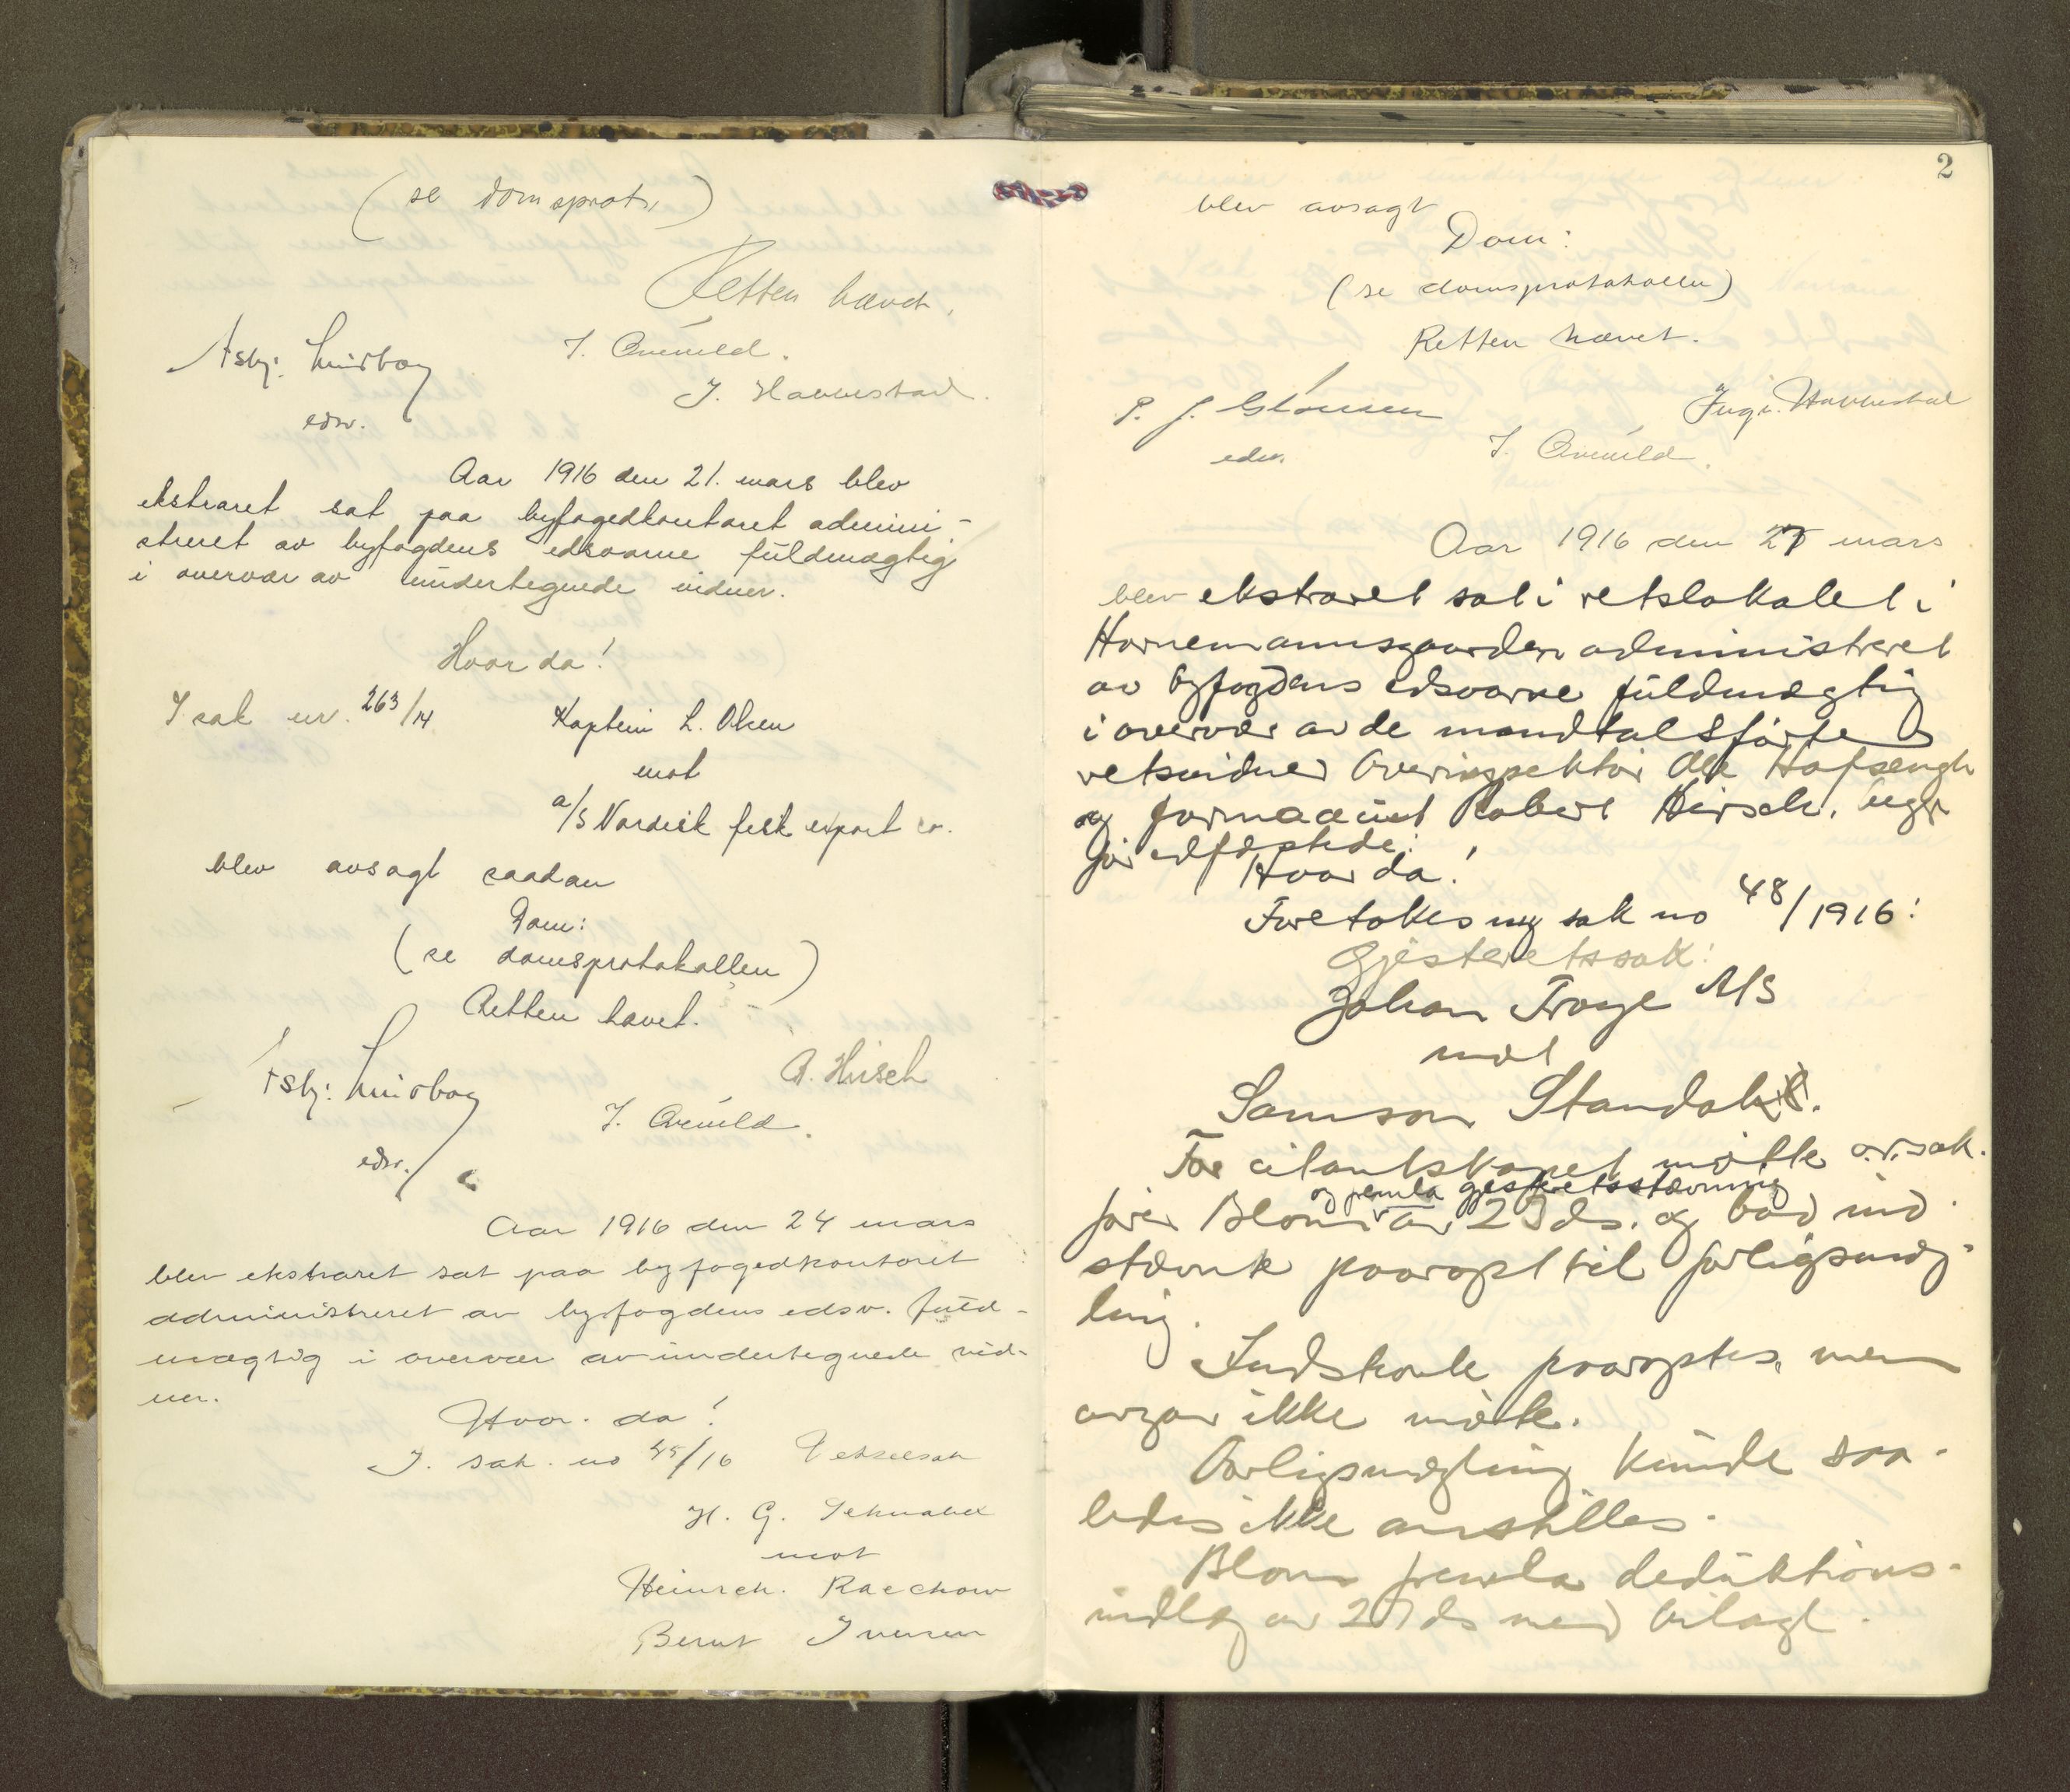 (se domsprot.)
Retten hævet.
Asbj: Lindbog
edsv.
J. Arnveld.
J. Havnestad.
Aar 1916 den 21. mars blev
ekstraret sat paa byfogedkontoret admini-
streret av byfogdens edsvorne fuldmægtig
i overvær av undertegnede vidner.
Hvor da!
I sak nr. 263/14 Kaptein L. Olsen
mot
a/s Nordisk fisk export co.
blev avsagt saadan
Dom:
(se domsprotokollen)
Retten hævet.
Asbj: Lindbog
edsv.
A. Hirsch
J. Arnveld.
Aar 1916 den 24 mars
blev ekstraret sat paa byfogedkontoret
administreret av byfogdens edsv. fuld-
mægtig i overvær av undertegnede vid-
ner.
Hvor da!
I. sak. no 45/16 Vekselsak
H. G. Schnabel
mot
Heinrch. Raechow
Bernt Iversen
2
blev avsagt
Dom:
(se domsprotokollen)
Retten hævet.
P. J.
edsv.
Inga Havnestad
J. Arnveld.
Aar 1916 den 27 mars
blev ekstraret sat i retslokalet i
Hornemannsgaarden administreret
av byfogdens edsvorne fuldmægtig
i overvær av de mandtalsførte
retsvidner Overinspektør Ole
og formaaent Robert Hirsch, begge
før edfæstede.
Hvor da!
Foretokes ny sak no 48/1916:
Gjesteretssak:
Johan Troye A/S
mot
Samson Standal.
For citantskapet møtte o.r.sak-
fører Blom
og fremla gjesteretsstævning
av 23 ds. og bad ind-
stævnte paaropt til forligsmæg-
ling.
Indstevnte paaroptes, men
avgav ikke møte.
Forligsmægling kunde saa-
ledes ikke anstilles.
Blom fremla deduktions-
indlæg av 27 ds med bilagt.